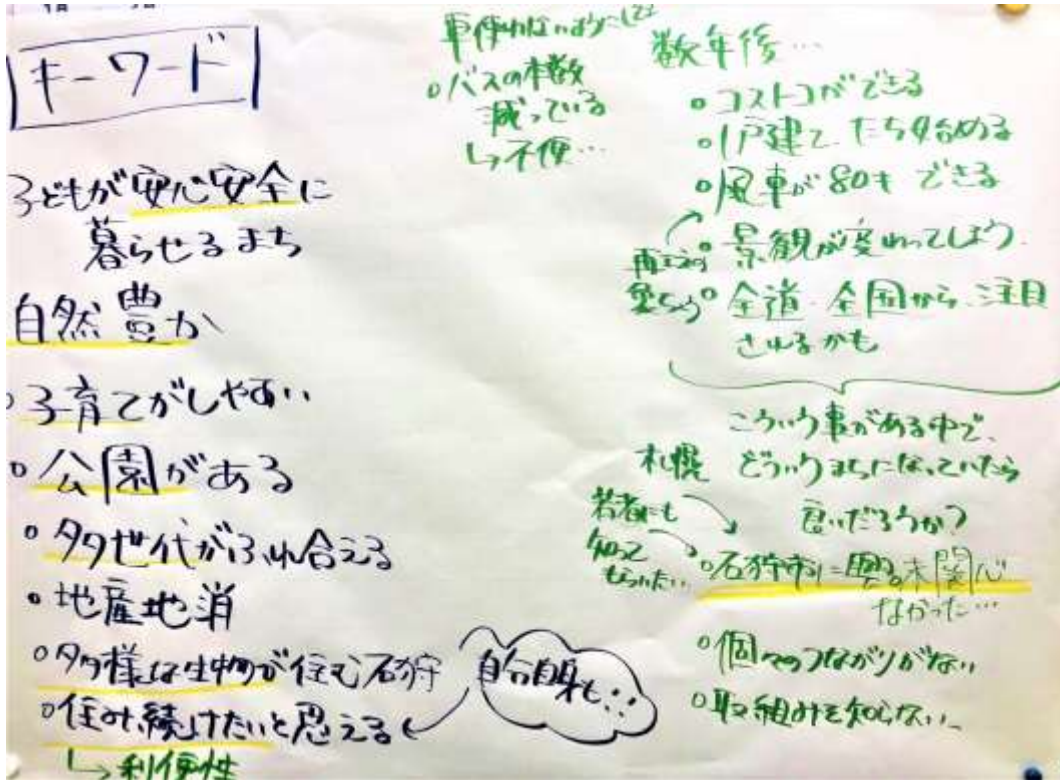 キーワード
子どもが安心安全に
暮らせるまち
自然豊か
○子育てがしやすい
○公園がある
○多世代がふれ合える
・地産地消
○多様な生物が住む石狩
○住み続けたいと思える
↳利便性
自分自身も:
車使わないように
○バスの本数
減っている
↳不便…
数年後…
○コストコができる
○1戸建て たち始める
○風車が80キ できる
○景観が変わってしまう
再エネの
○全道・全国から注目
されるかも
こういう事がある中で、
どういうまちになっていたら
良いだろうか?
札幌
若者にも
知って
もらいたい
○石狩市に興味関心
なかった…
○個々のつながりがない
○取組みを知らない